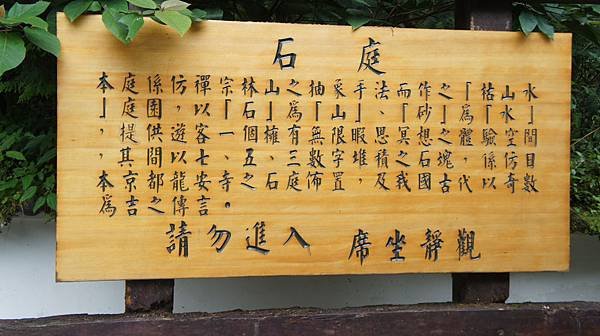 石庭
本庭係仿禪宗林山之抽象手法而作之『枯山水
』庭園，以『石』為『山』、『砂』為『水』
，提供遊客一個擁有無限暇思冥想之體驗空間
，其間以七、五、三數字堆積之石塊，係仿日
本京都龍安寺之石庭佈置，及我國古代以奇數
為吉之傳言。
請勿進入 席坐靜觀